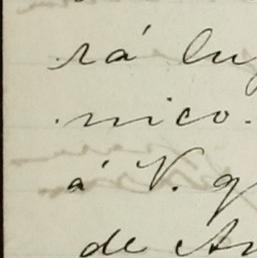 rá lu
nico.
á V. q
de An